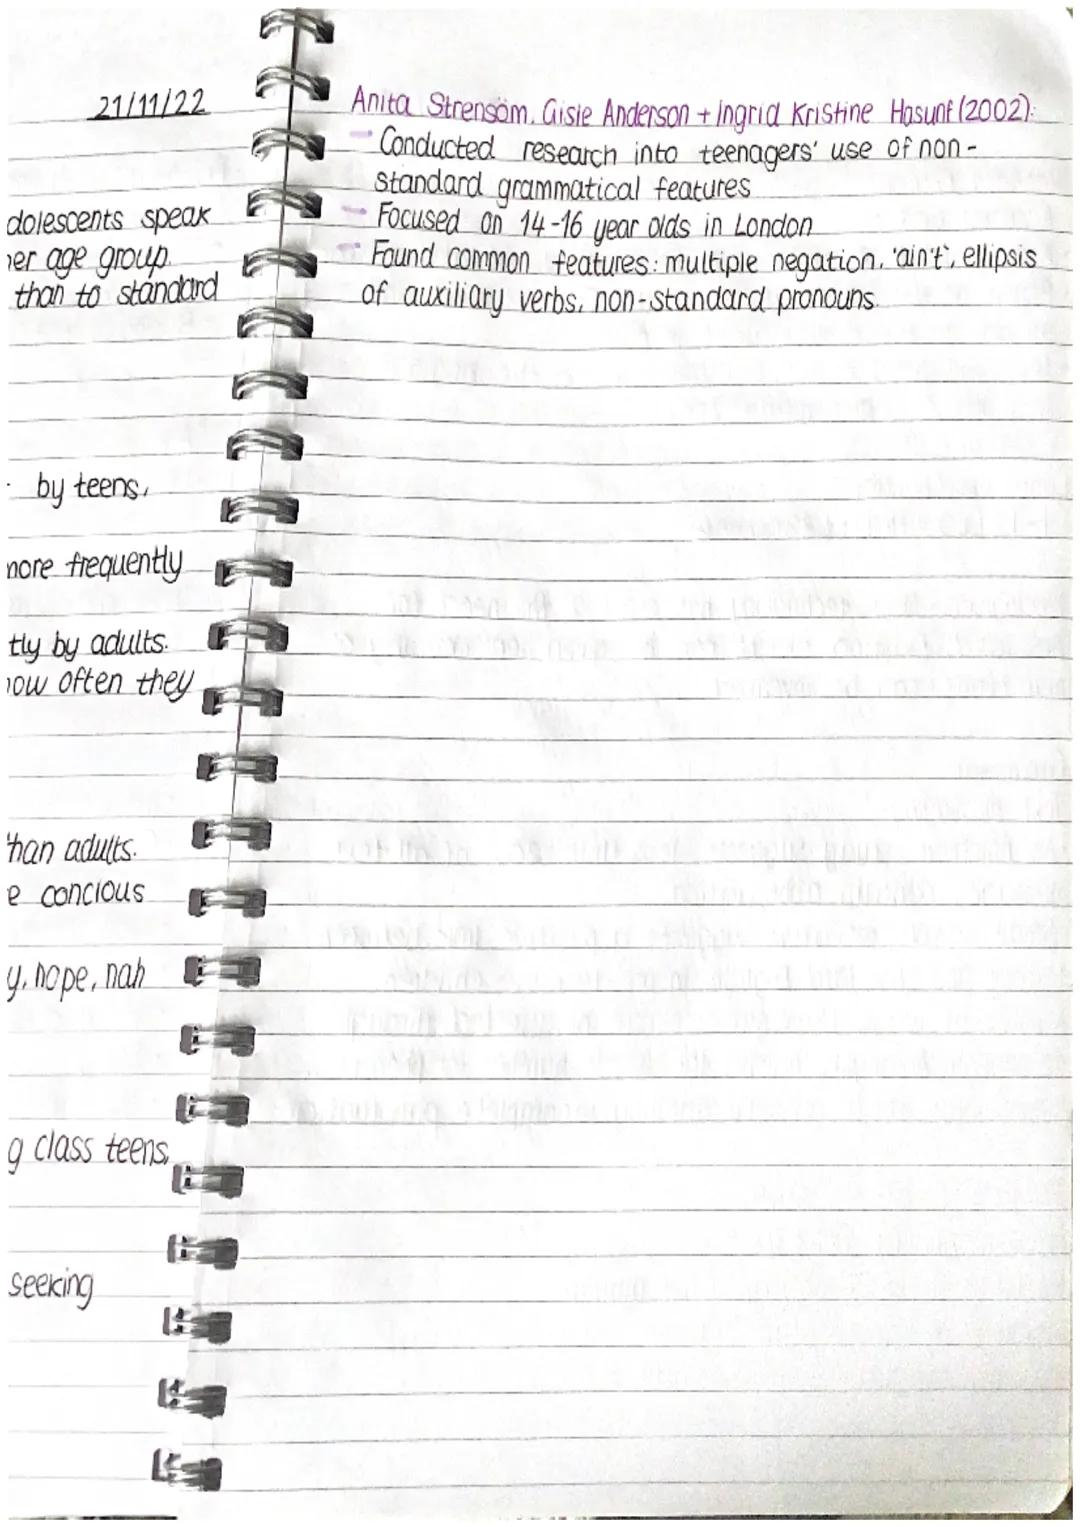 21/11/22
dolescents speak
er age group.
than to standard
by teens,
more frequently
tly by adults.
how often they
than adults.
e concious
y, nope, nah
g class teens,
seeking
Anita Strensöm, Gisle Anderson + Ingrid Kristine Hasunf (2002):
- Conducted research into teenagers' use of non-
standard grammatical features
- Focused on 14-16 year olds in London
- Found common features: multiple negation, 'ain't', ellipsis
of auxiliary verbs, non-standard pronouns.